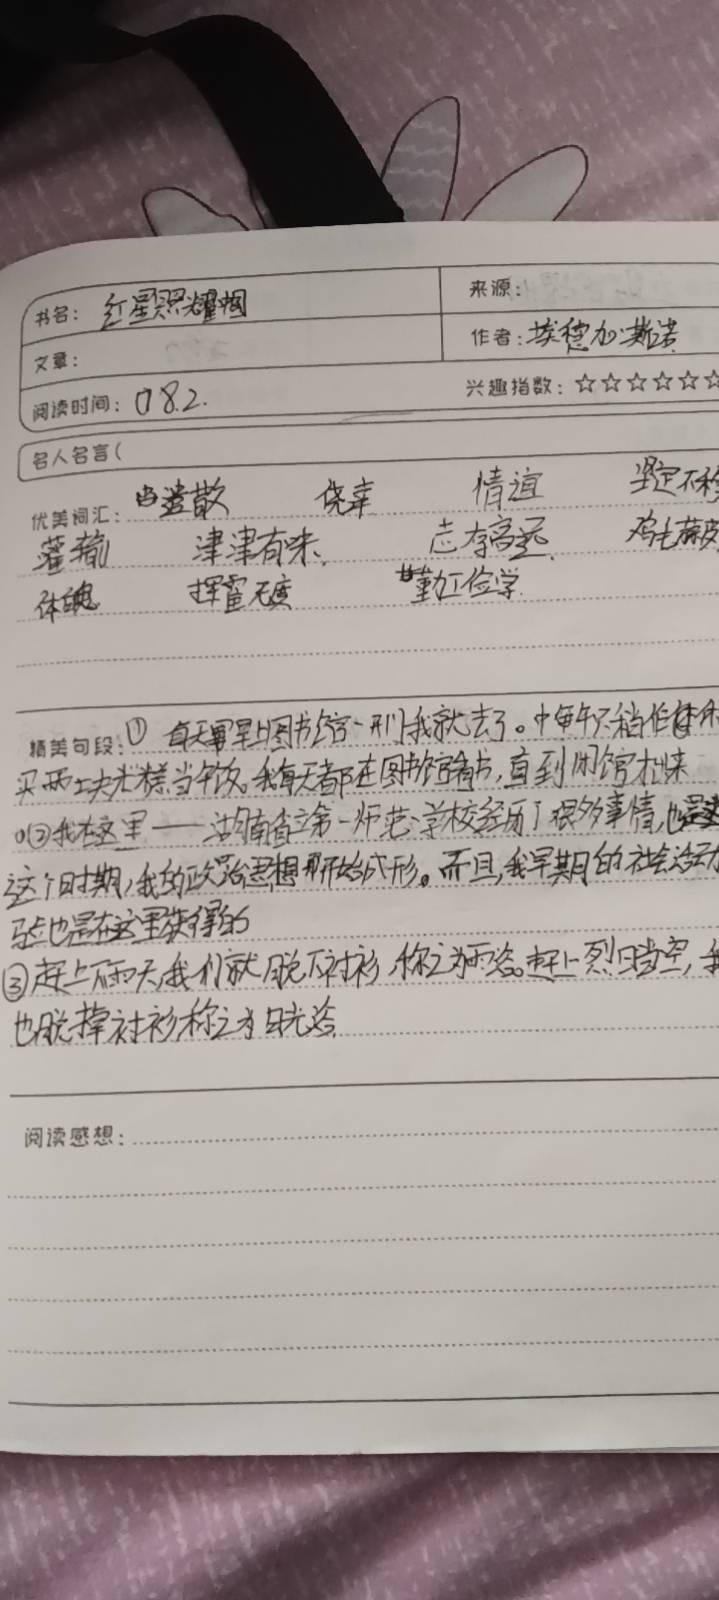 书名： 红星照耀中国
来源：
文章：
作者：埃德加·斯诺
阅读时间： 8.2.
兴趣指数：☆☆☆☆☆☆
名人名言(
优美词汇： 遣散 侥幸 情谊 坚定不移
灌输 津津有味 志存高远 鸡毛蒜皮
体魄 挥霍无度 勤工俭学
精美句段：① 每天早上图书馆一开门我就去了。中午只稍作休
买两块米糕当午饭。我每天都在图书馆看书，直到闭馆才出来
②我在这里——湖南省立第一师范学校经历了很多事情，也是在
这个时期，我的政治思想开始成形。而且，我早期的社会活动
验也是在这里获得的
③赶上下雨天，我们就脱下衬衫，称之为雨浴。赶上烈日当空，我
也脱掉衬衫称之为日光浴
阅读感想：